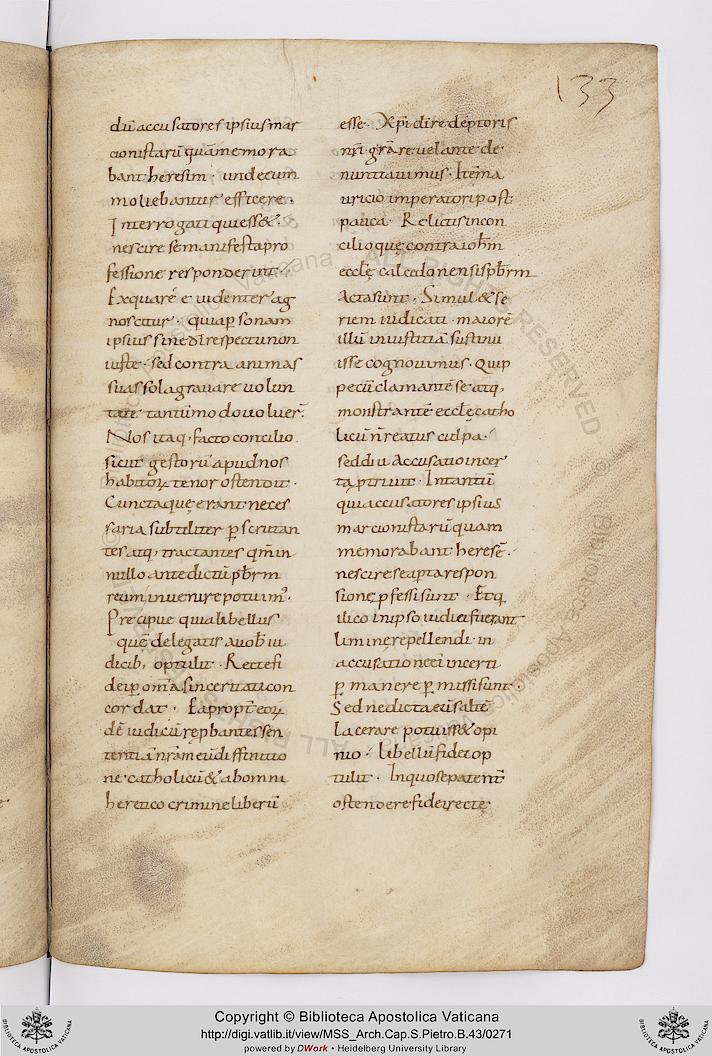 133
dū accusatores ipsius mar
cionistarū quā memora
bant heresim · unde cum
moliebantur efficere ·
Interrogati qui ess& ·
nescire se manifesta pro
fessione responderunt ·
Ex qua rē evidenter ag
noscitur · quia ꝑsonam
ipsius sine dī respectu non
iuste · sed contra animas
suas sola gravare volun
tate tantūmodo voluer̄ ·
Nos itaq, facto concilio
sicut gestorū apud nos
habitoꝝ tenor ostendit ·
Cuncta quę erant neces
saria subtiliter ꝑscrutan
tes atq, tractantes qm̄ in
nullo antedictū pb̄rm
reum invenire potuim᾽ ·
Precipue quia libellus
quē delegatis a vob̄ iu
dicib, optulit · Rectę fi
dei ꝑ om̄a sinceritati con
cordat · Eapropt̄ eoꝝ
dē iudiciū rep̱bantes sen
tentia nr̄am eū diffinitio
ne catholicū & ab omni
heretico crimine liberū
esse · Xp̄i dī redēptoris
nr̄i grā revelante de
nuntiavimus · Itē ma
uricio imperatori post
pauca · Relictis in con
cilio que contra ioh̄m
ecclę calcedonensis pb̄rm
Acta sunt · Simul & se
riem iudicati · maiorē
illū iniustitiā sustinu
isse cognovimus · Quip
pe cū clamantē se atq,
monstrantē ecclę catho
licū n̄ reatus culpa ·
sed diu Accusatio incer
ta ꝑtrivit · Intantū
qui accusatores ipsius
marcionistarū quam
memorabant heresē ·
nescire se aꝑta respon
sione ꝓfessi sunt · Et q
ilico in ipso iudicii fuerant
limine repellendi · in
accusatione ei incerti
ꝑmanere ꝑmissi sunt ·
Sed ne dicta eū saltē
lacerare potuiss& opi
nio · libellū fidei op
tulit · In quo se patent̄
ostendere fidei rectę
Copyright © Biblioteca Apostolica Vaticana
http://digi.vatlib.it/view/MSS_Arch.Cap.S.Pietro.B.43/0271
powered by DWork • Heidelberg University Library